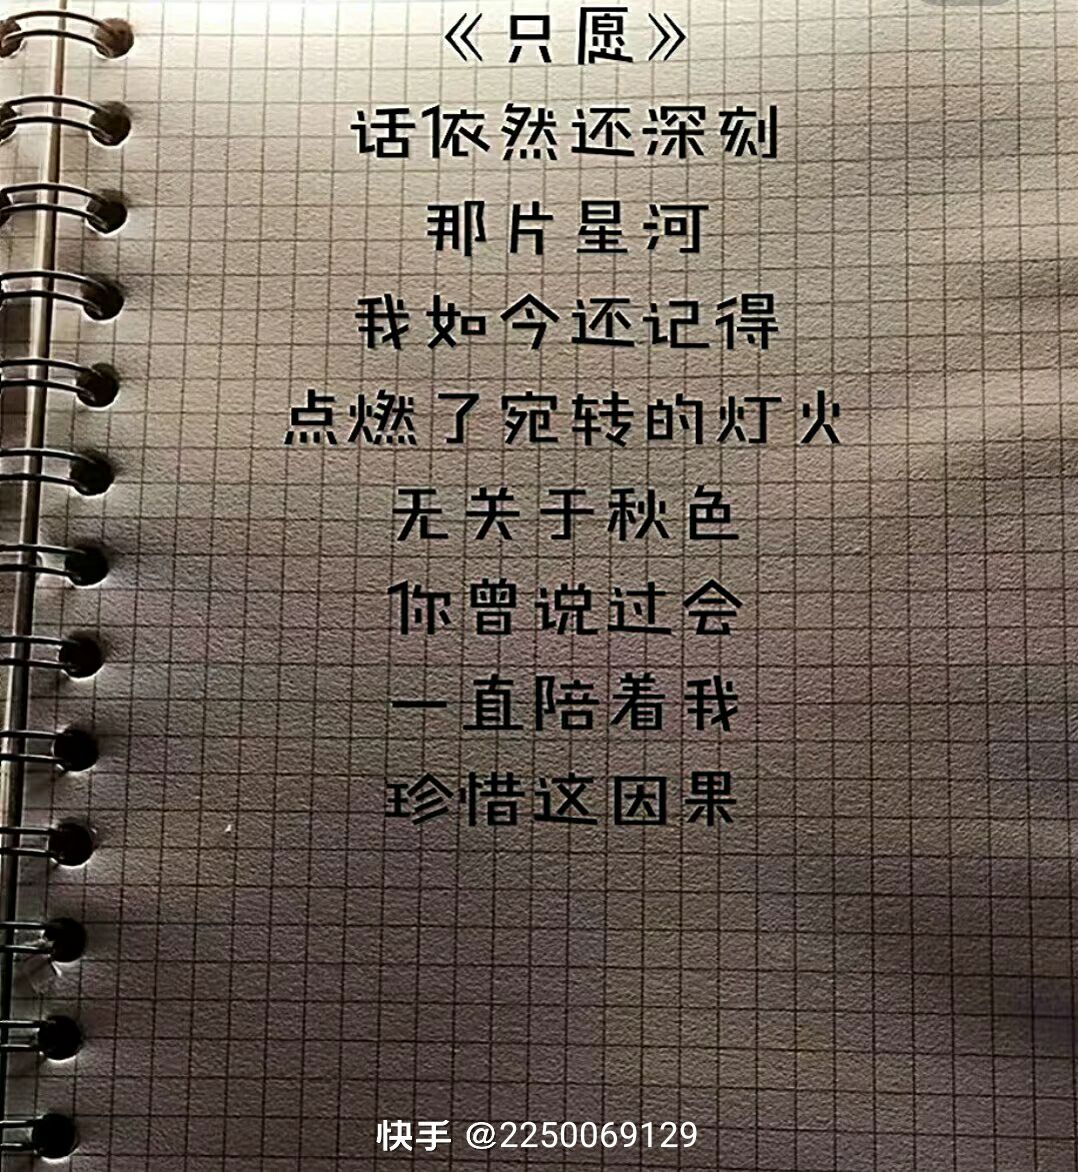 《只愿》
话依然还深刻
那片星河
我如今还记得
点燃了宛转的灯火
无关于秋色
你曾说过会
一直陪着我
珍惜这因果
快手 @2250069129